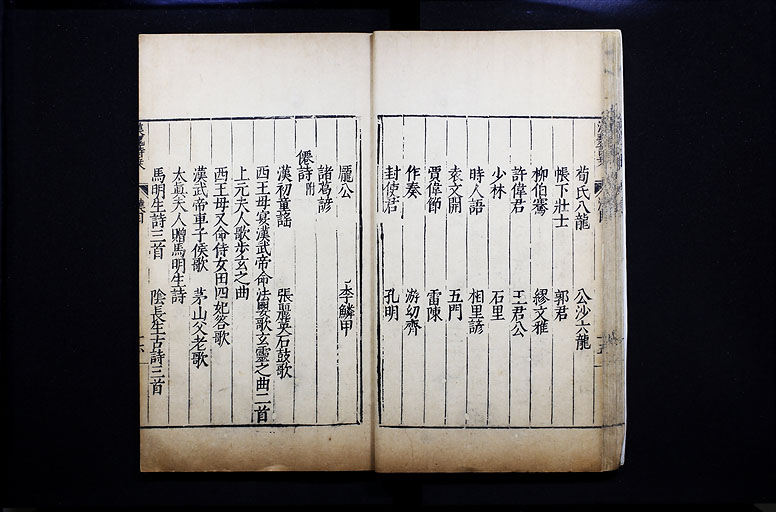 荀氏八龍 公沙六龍
帳下壯士 郭君
柳伯騫 繆文雅
許偉君 王君公
少林 石里
時人語 相里諺
袁文開 五門
賈偉節 雷陳
作奏 游幼齊
封使君 孔明
龐公 李鱗甲
諸葛諺
僊詩附
漢初童謠 張麗英石鼓歌
西王母宴漢武帝命法嬰歌玄靈之曲二首
上元夫人歌步玄之曲
西王母又命侍女田四妃答歌
漢武帝車子侯歌 茅山父老歌
太真夫人贈馬明生詩
馬明生詩三首 陰長生古詩三首